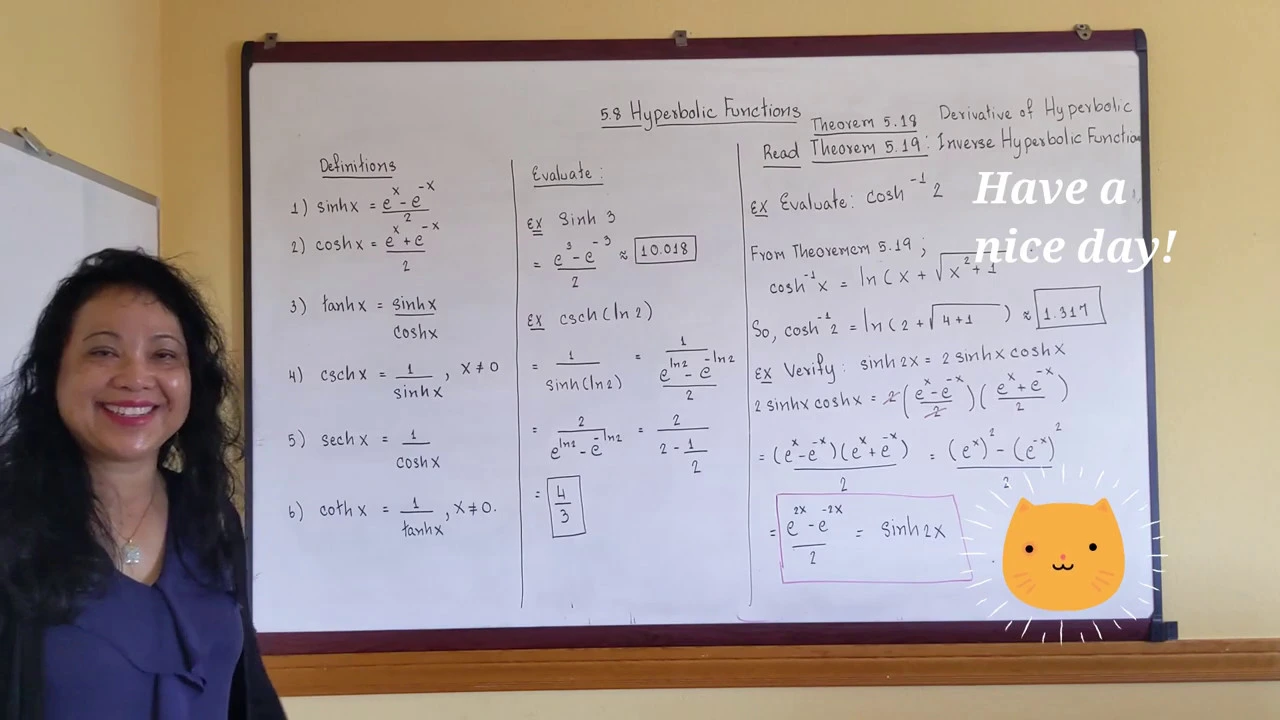 5.8 Hyperbolic Functions
Theorem 5.18 Derivative of Hyperbolic
Read Theorem 5.19: Inverse Hyperbolic Function
Definitions
1) sinh x = (e^x - e^-x)/2
2) cosh x = (e^x + e^-x)/2
3) tanh x = sinh x / cosh x
4) csch x = 1/sinh x , x ≠ 0
5) sech x = 1/cosh x
6) coth x = 1/tanh x , x ≠ 0.
Evaluate:
Ex Sinh 3
= (e^3 - e^-3)/2 ≈ 10.018
Ex csch(ln 2)
= 1/sinh(ln 2) = 1/((e^ln2 - e^-ln2)/2)
= 2/(e^ln2 - e^-ln2) = 2/(2 - 1/2)
= 4/3
Ex Evaluate: cosh^-1 2
From Theoremem 5.19 ;
cosh^-1 x = ln(x + √(x^2 + 1
So, cosh^-1 2 = ln(2 + √(4+1) ) ≈ 1.317
Ex Verify: sinh 2x = 2 sinh x cosh x
2 sinh x cosh x = 2((e^x - e^-x)/2)((e^x + e^-x)/2)
= (e^x - e^-x)(e^x + e^-x)/2 = ((e^x)^2 - (e^-x)^2)/2
= (e^2x - e^-2x)/2 = sinh 2x
Have a
nice day!